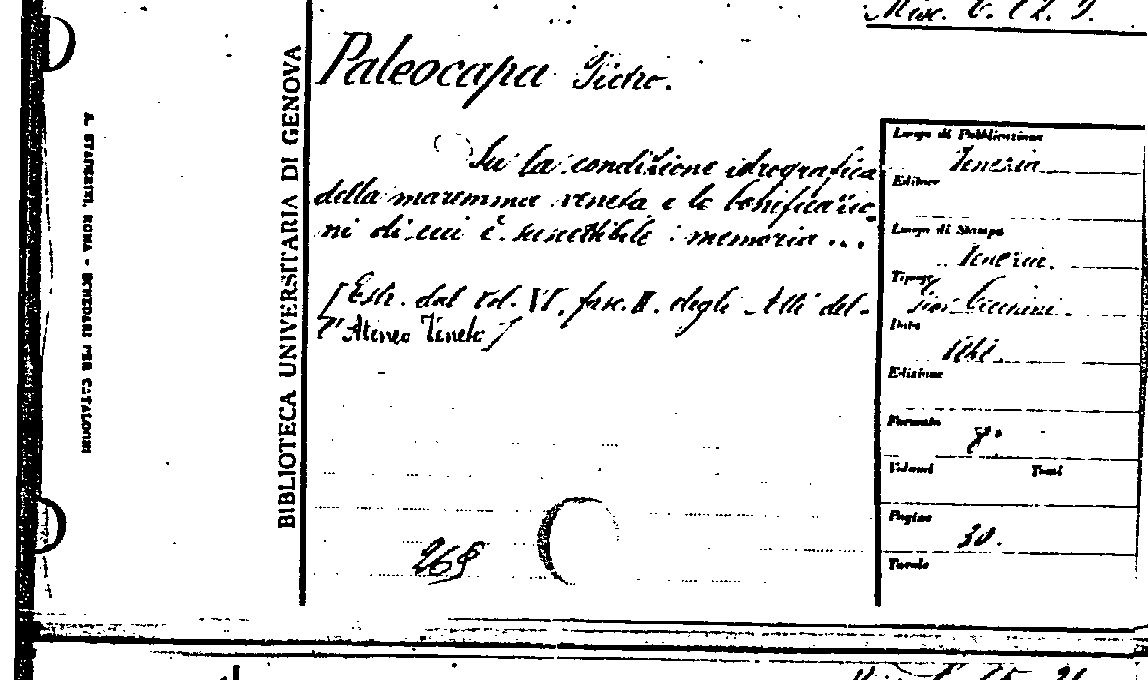 Misc. C.
Paleocapa Pietro.
BIBLIOTECA UNIVERSITARIA DI GENOVA
A. STADERINI, ROMA - SCHEDARI PER CATALOGHI
Su la condizione idrografica
della maremma veneta e le bonificazio-
ni di cui è suscettibile : memoria ...
[Estr. dal vol. VI. fasc. II. degli Atti del-
l'Ateneo Veneto]
269
Luogo di Pubblicazione
Venezia
Editore
Luogo di Stampa
Venezia.
Tipogr.
Data
Edizione
Formato
8°
Volumi Tomi
Pagine
30.
Tavole